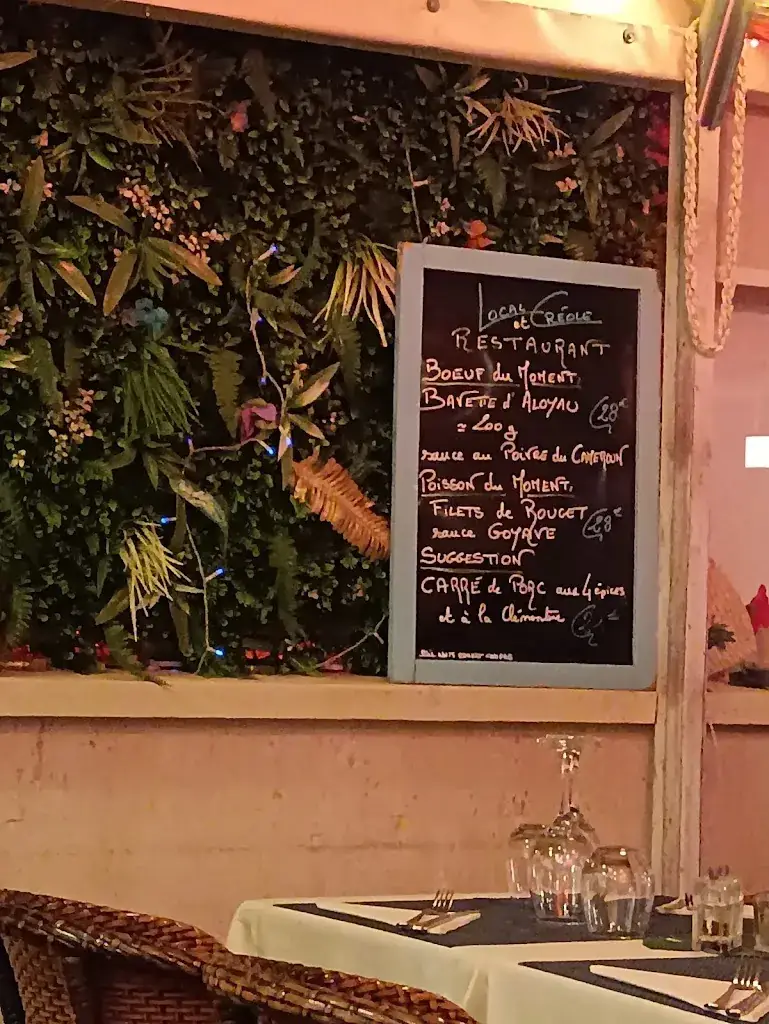 LOCAL
et CRÉOLE
RESTAURANT
BOEUF du MOMENT
BAVETTE d'ALOYAU 28€
≃ 200g
sauce au POIVRE du CAMEROUN
POISSON du MOMENT
FILETS de ROUGET 28€
sauce GOYAVE
SUGGESTION
CARRÉ de PORC aux 4 épices
et à la Clémentine